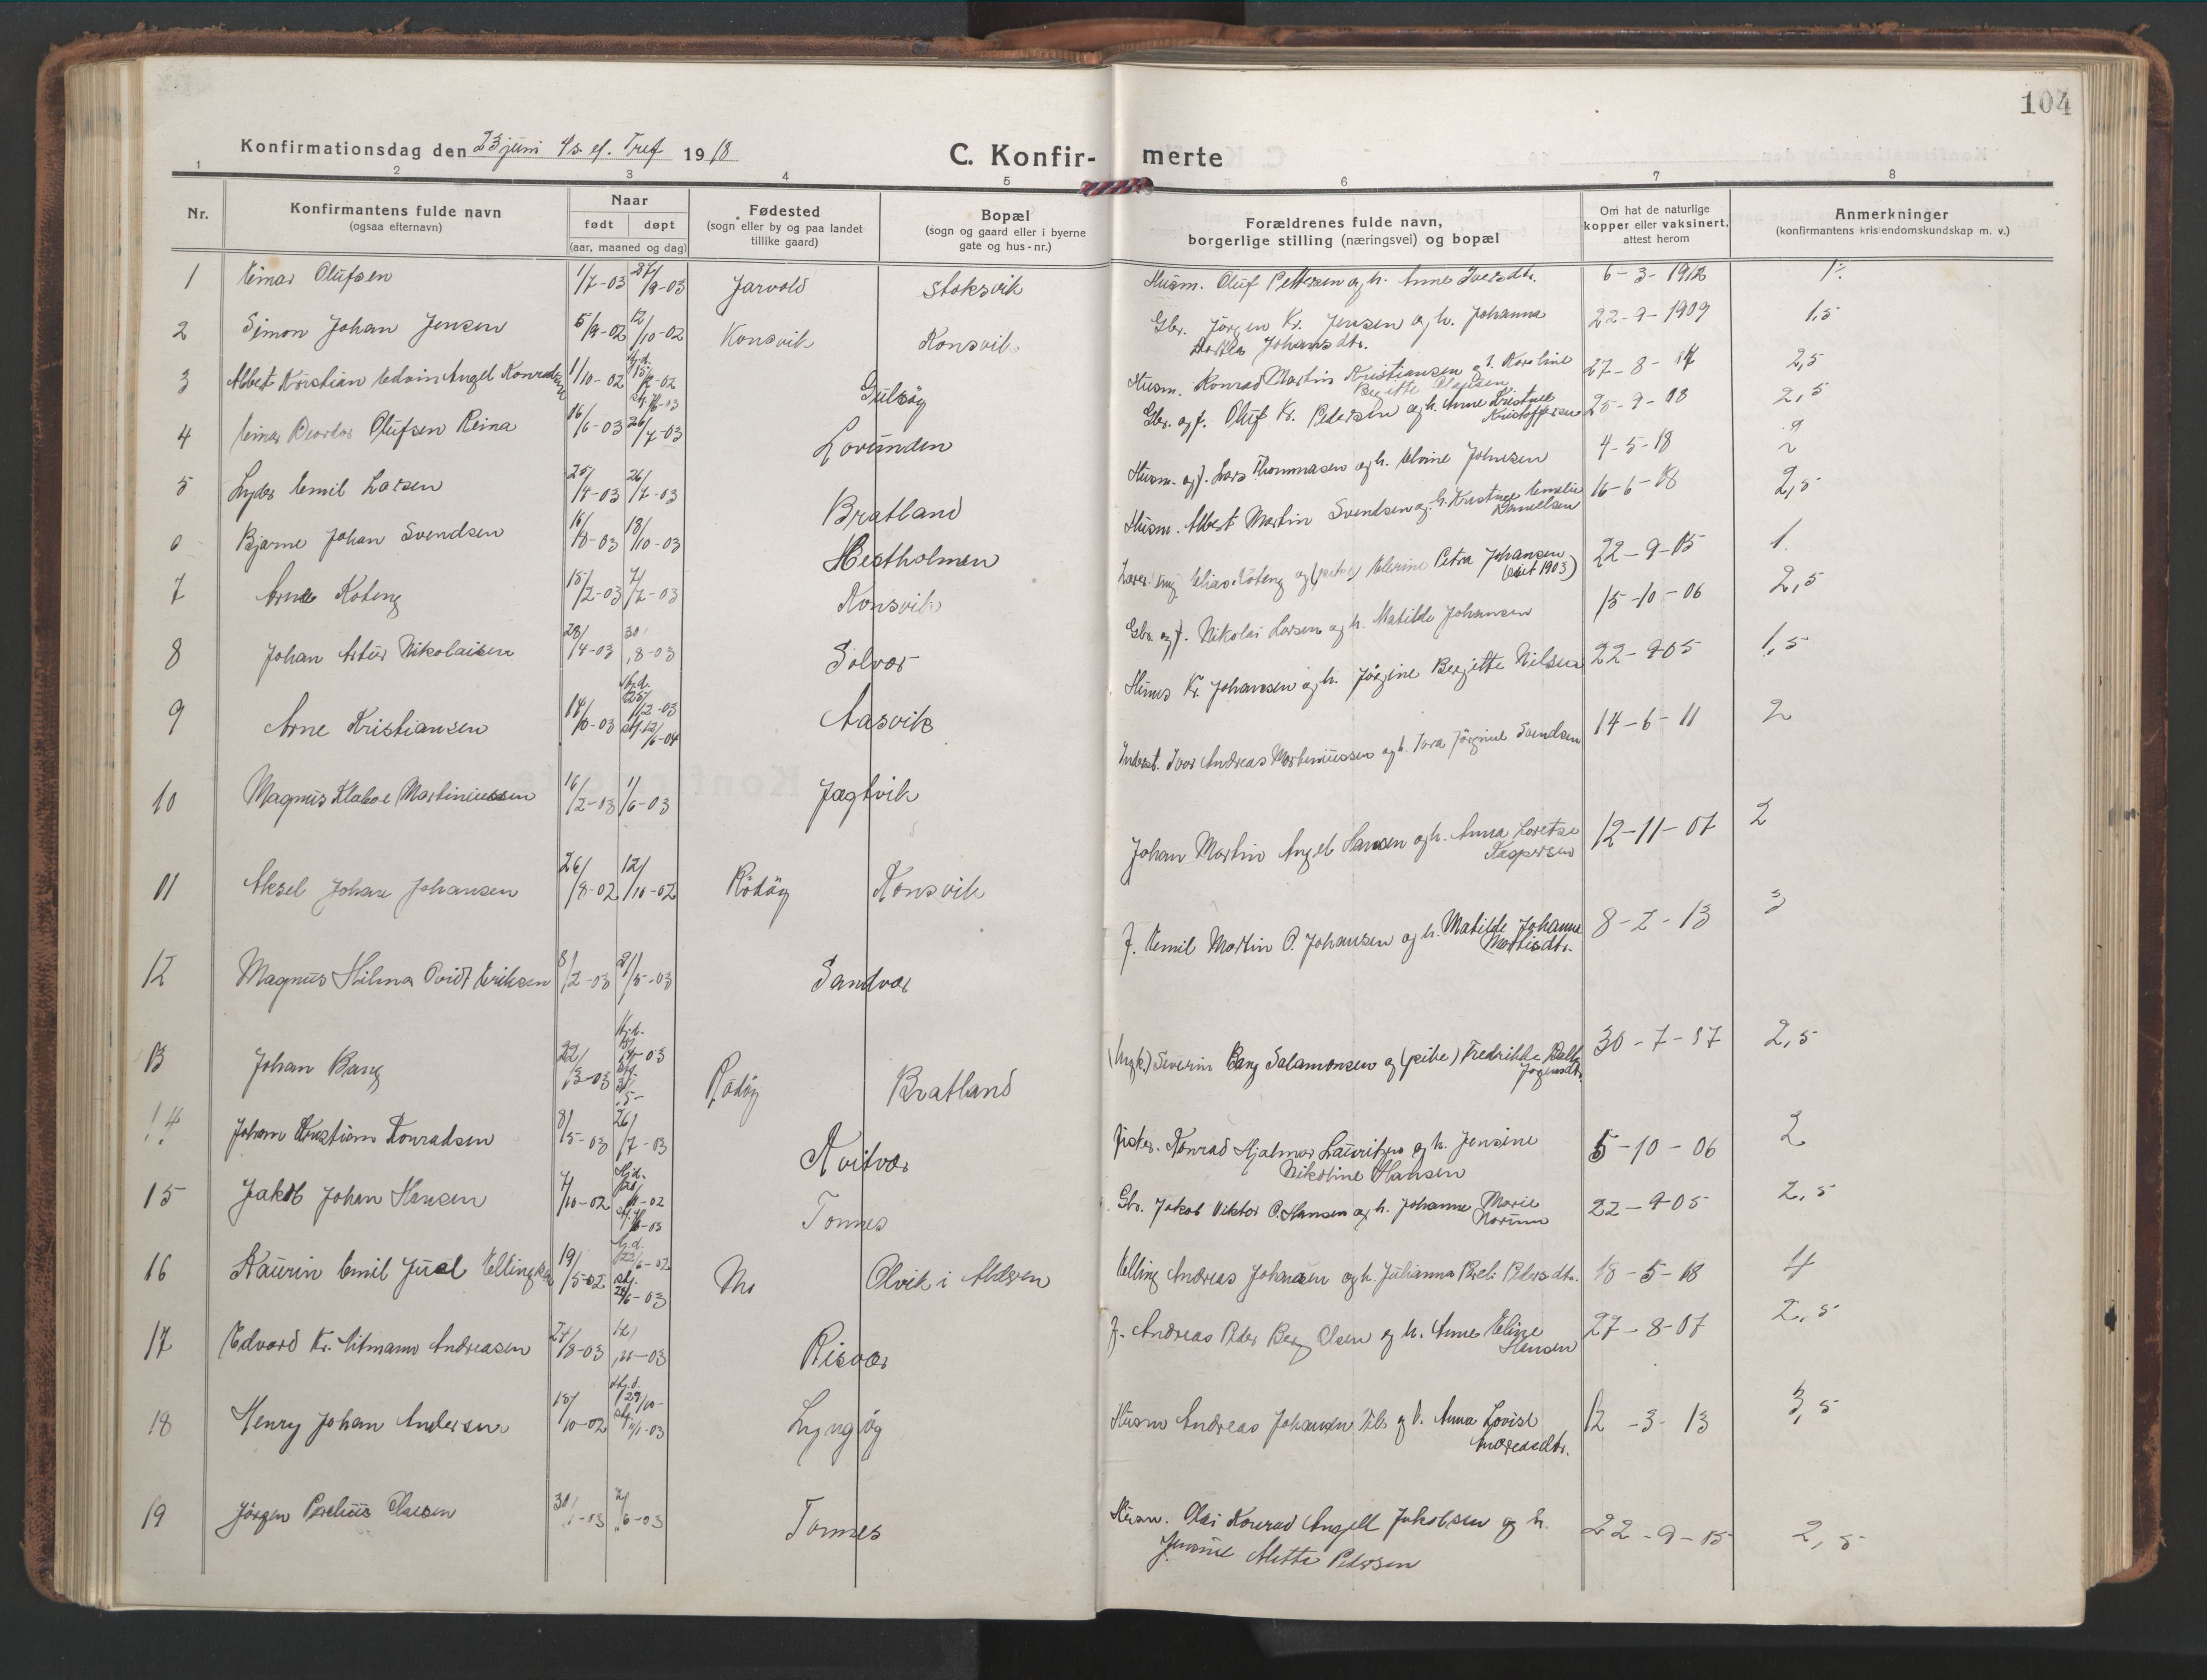 104
Konfirmationsdag den 23 juni 4/s ef. Tref 1918
C. Konfir- merte
1 2 3 4 5 6 7 8
Nr.
Konfirmantens fulde navn
(ogsaa efternavn)
Naar
født døpt
(aar, maaned og dag)
Fødested
(sogn eller by og paa landet
tillike gaard)
Bopæl
(sogn og gaard eller i byerne
gate og hus-nr.)
Forældrenes fulde navn,
borgerlige stilling (næringsvei) og bopæl
Om hat de naturlige
kopper eller vaksinert,
attest herom
Anmerkninger
(konfirmantens kristendomskundskap m. v.)
1 Einar Olufsen 1/7-03 27/9-03 Jarvold Stoksvik Husm. Oluf Pettersen og h. Anne Iversdtr. 6-3-1912 1
2 Simon Johan Jensen 5/9-02 12/10-02 Konsvik Konsvik Gbr. Jörgen Kr. Jensen og h. Johanna
Johansdtr. 22-9-1909 1,5
3 Albert Kristian Edvin Angel Konradsen 1/10-02 Hj.d. 15/12-02 Gulsöy Husm. Konrad Martin Kristiansen og h. Karoline
Bergitte Olausen 27-8-17 2,5
4 Einar Olufsen Reina 16/6-03 26/7-03 Lovunden Gbr. og f. Oluf Kr. Pedersen og h. Anne Kristine
Kristoffersen 25-9-08 2,5
5 Lyder Emil Larsen 25/4-03 26/7-03 Bratland Husm. og f. Lars Thommasen og h. Elvine Johnsen 4-5-18 2
6 Bjarne Johan Svendsen 16/8-03 18/10-03 Hestholmen Husm. Albert Martin Svendsen og h. Kristine Emelie
Danielsen 16-6-08 2,5
7 Arne Koteng 15/2-03 7/7-03 Konsvik Elias Koteng og (pike) Elerine Petra Johansen
22-9-05 1
8 Johan Artur Nikolaisen 28/4-03 30/8-03 Solvær Gbr. og f. Nikolai Larsen og h. Matilde Johansen 15-10-06 2,5
9 Arne Kristiansen 14/10-03 Hj.d. 25/12-03 stf. 12/6-04 Aasvik Kr. Johansen og h. Jörgine Bergitte Nilsen 22-9-05 1,5
10 Magnus Klaboe Martiniussen 16/2-03 1/6-03 Jægtvik Inderst. Ivar Andreas Martiniussen og h. Ivra Jörgine Svendsen 14-6-11 2
11 Aksel Johan Johansen 26/8-02 12/10-02 Rödöy Konsvik Johan Martin Angel Hansen og h. Anna Loretse
Kaspersen 12-11-07 2
12 Magnus Hilmar Ovidt Eriksen 8/2-03 31/5-03 Sandvær F. Emil Martin O. Johansen og h. Matilde Johanne
Martisdtr. 8-2-13 3
13 Johan Bang 22/3-03 Rödöy Bratland (Ungk.) Severin Bang Salamonsen og (pike) Fredrikke
30-7-17 2,5
14 Johan Kristian Konradsen 8/5-03 26/7-03 Kvitvær Fisker. Konrad Hjalmar Lauritzen og h. Jensine
Nikoline Hansen 5-10-06 2
15 Jakob Johan Hansen 7/10-02 Tonnes Gbr. Jakob Viktor O. Hansen og h. Johanne Marie
22-9-05 2,5
16 Kaurin Emil Juel Ellingsen 19/5-02 Mo Olvik i Aldersen Elling Andreas Johansen og h. Julianna Pedersdtr. 18-5-18 4
17 Edvard Kr. Andreasen 24/8-03 Risvær F. Andreas Peder Berg Olsen og h. Anne Eline
Hansen 27-8-07 2,5
18 Henry Johan Andersen 18/10-02 Lyngöy Husm Andreas Johansen og h. Anna Lovise
Andreasdtr. 12-3-13 3,5
19 Jörgen 30/1-03 Tonnes Husm. Olai Konrad Angell Jakobsen og h.
Jensine Alette Petersen 22-9-15 2,5